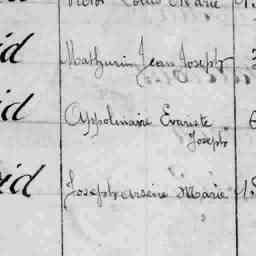 Victor Louis Marie 1
id Mathurin Jean Joseph
id Appolinaire Evariste 6
Joseph
id Joseph arsène Marie 15